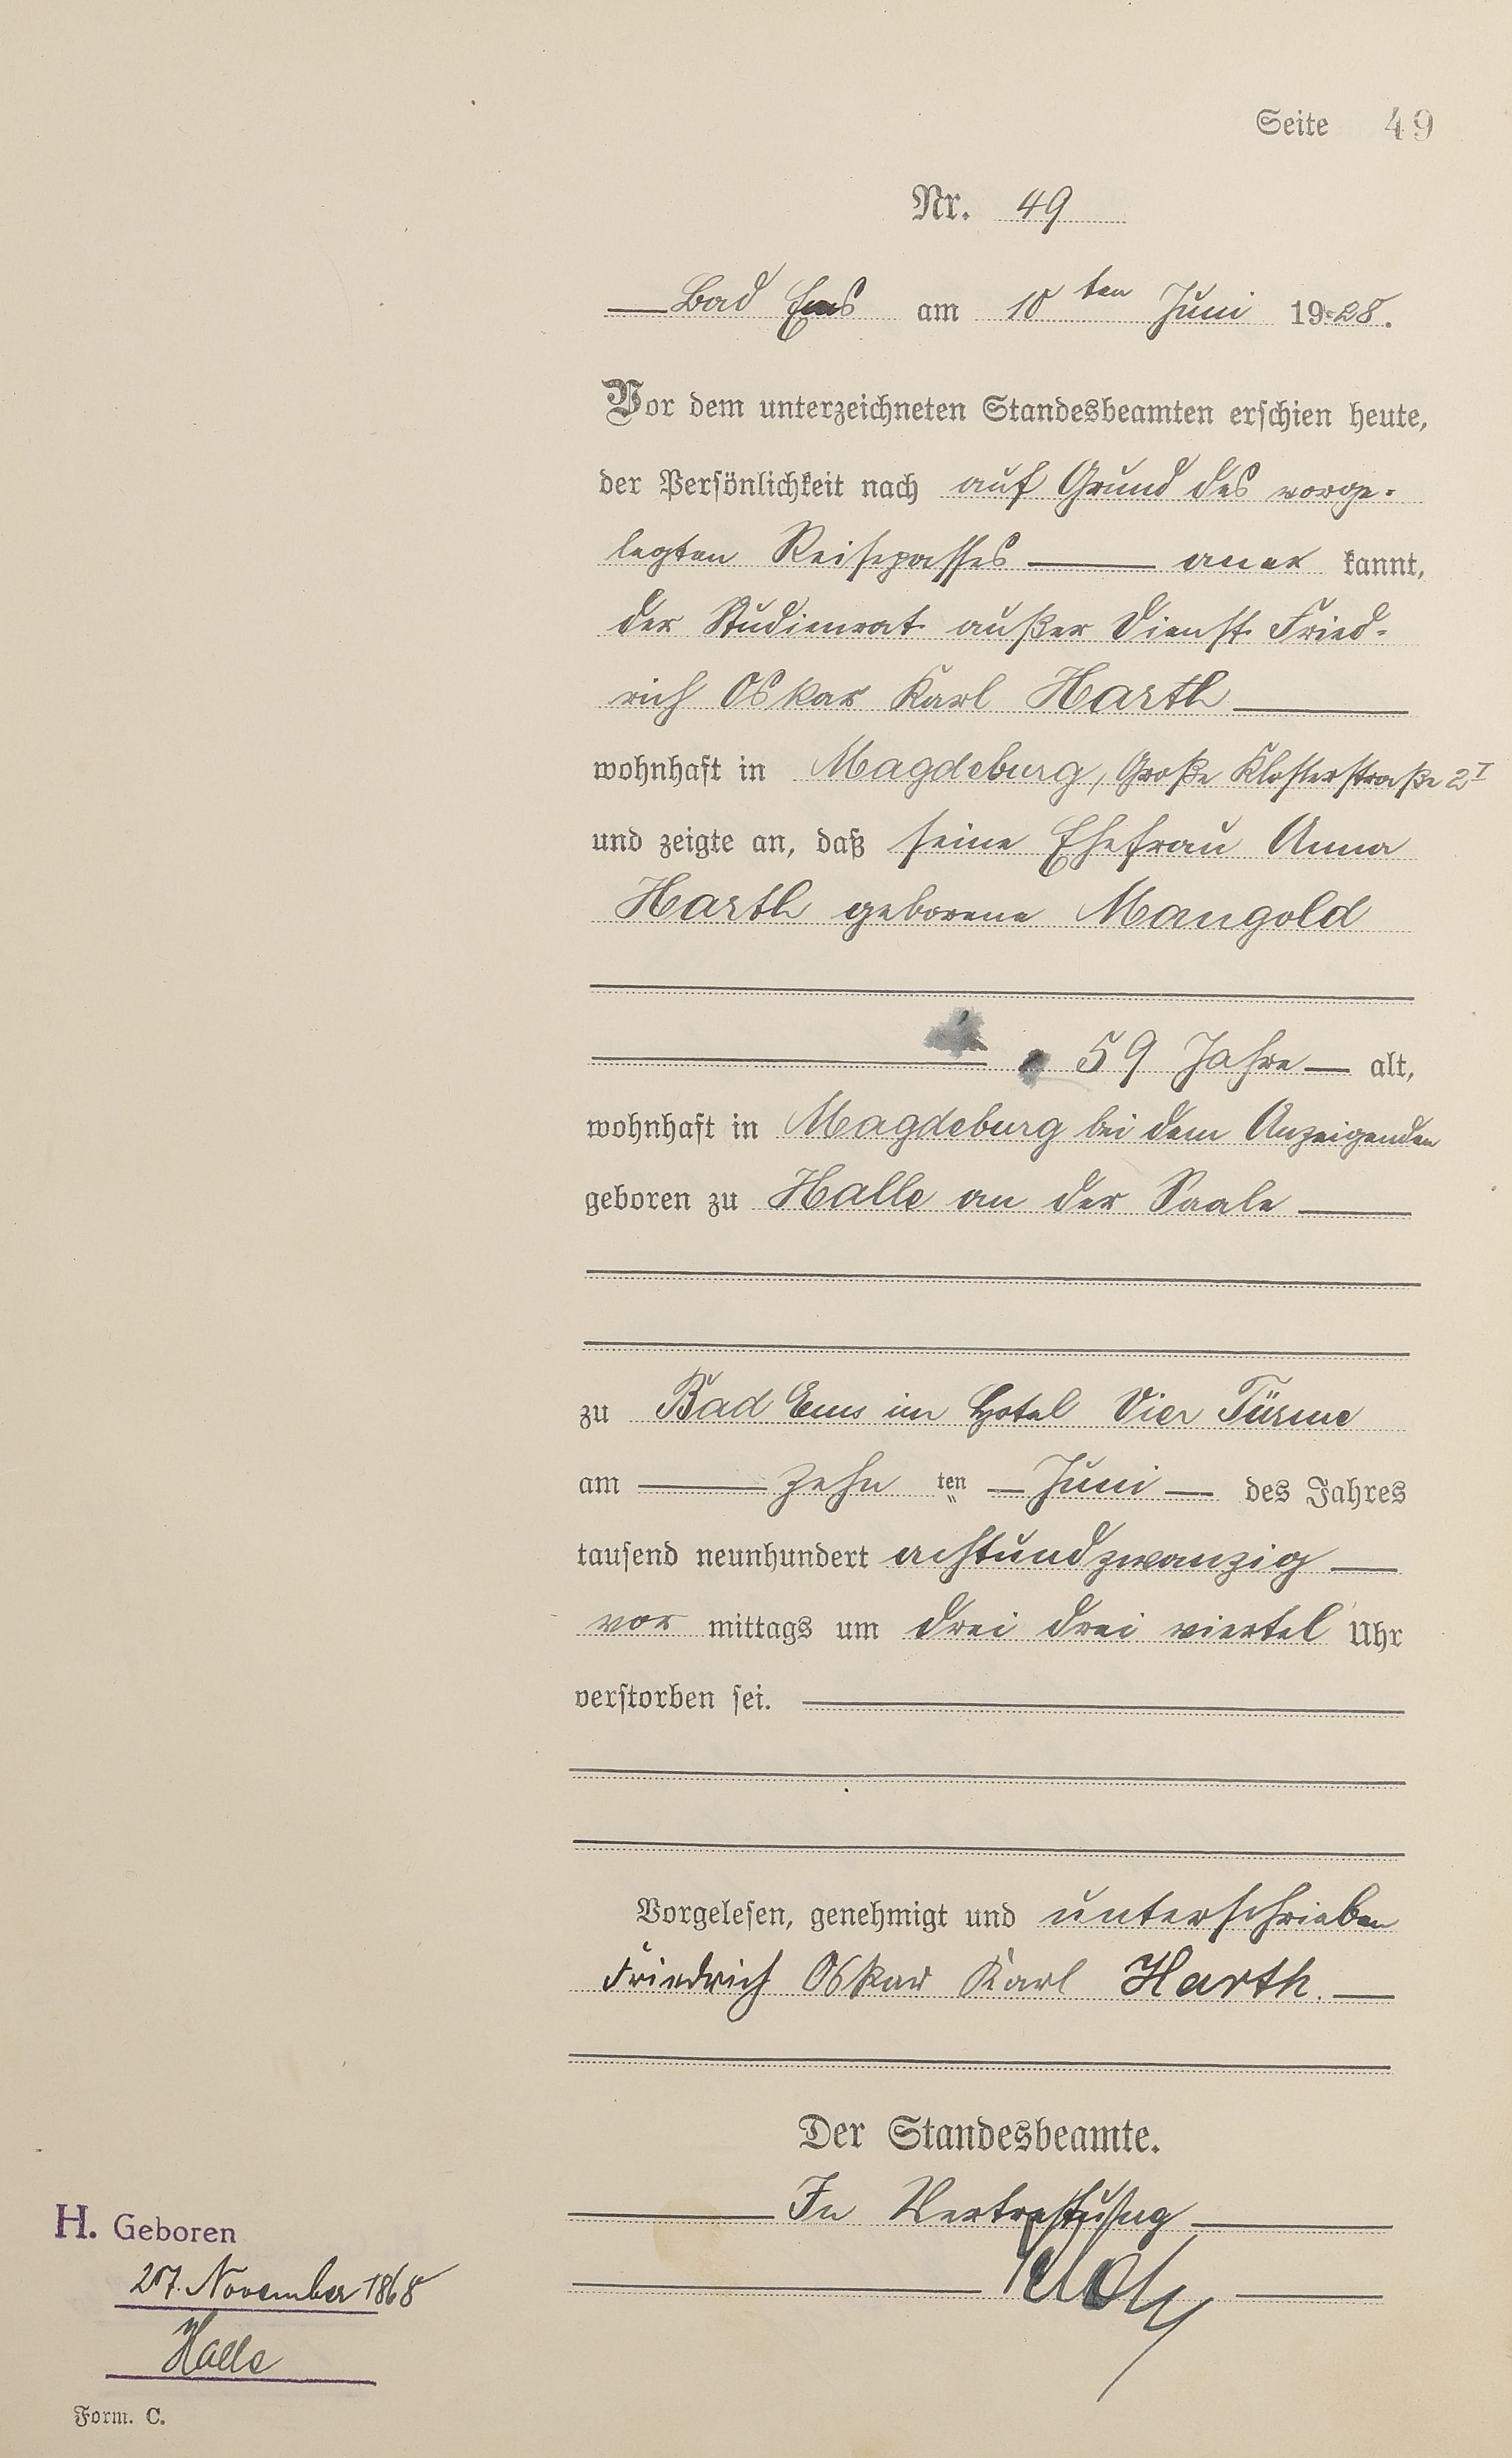 Seite 49
Nr. 49
Bad Ems am 10ten Juni 1928.
Vor dem unterzeichneten Standesbeamten erschien heute,
der Persönlichkeit nach auf Grund des vorge-
legten Reisepasses aner kannt,
der Studienrat außer Dienst Fried-
rich Oskar Karl Harth
wohnhaft in Magdeburg, Große Klosterstraße 2I
und zeigte an, daß seine Ehefrau Anna
Harth geborene Mangold
59 Jahre alt,
wohnhaft in Magdeburg bei dem Anzeigenden
geboren zu Halle an der Saale
zu Bad Ems im Hotel Vier Türme
am zehn ten Juni des Jahres
tausend neunhundert achtundzwanzig
vor mittags um drei drei viertel Uhr
verstorben sei.
Vorgelesen, genehmigt und unterschrieben
Friedrich Oskar Karl Harth.
Der Standesbeamte.
In Vertretung
H. Geboren
27. November 1868
Halle
Form. C.